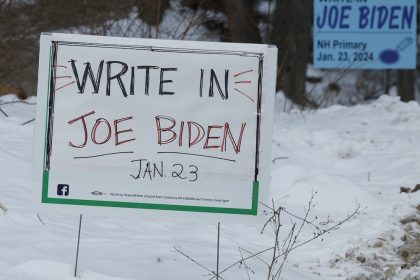 WRITE IN
JOE BIDEN
JAN. 23
WRITE IN
JOE BIDEN
NH Primary
Jan. 23, 2024